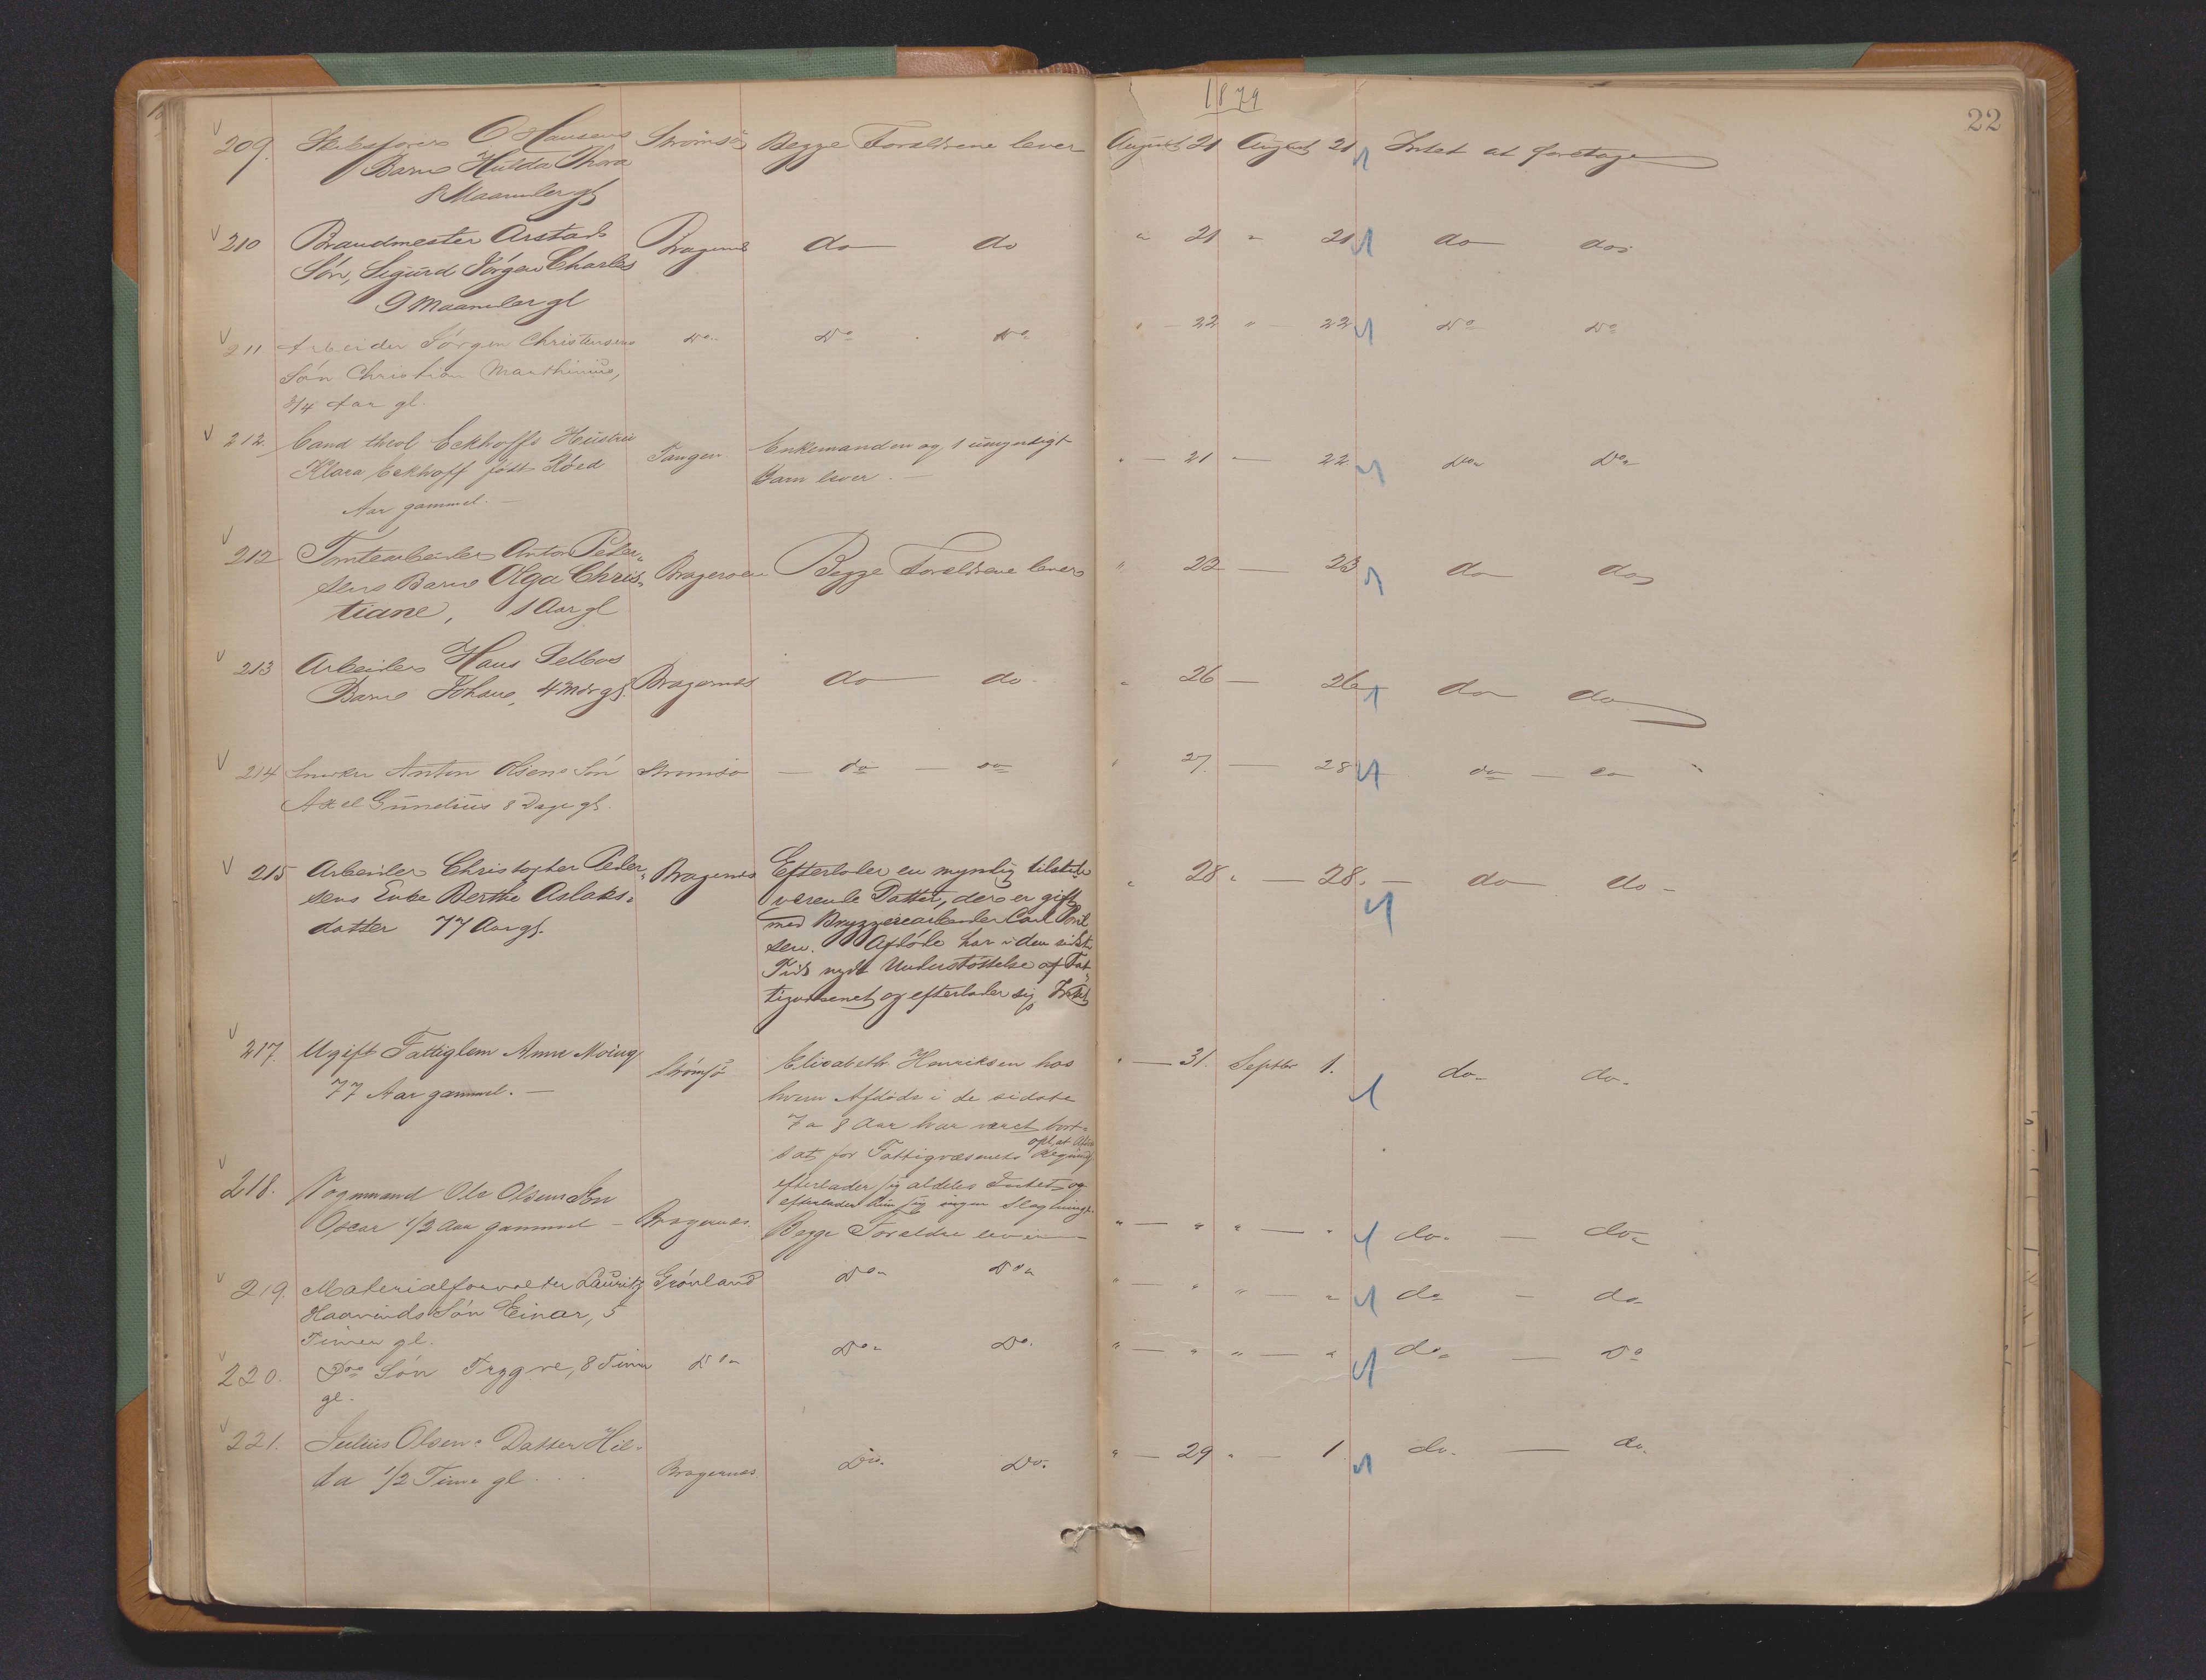 1879
22
209. Skibsfører C Hansens Strømsø Begge Forældrene lever August 21 August 21 Intet at foretage
Barn Hulda Thora
8 Maaneder gl
210 Brandmester Arstads Bragernes do do " 21 " 21 do do
Søn, Sigurd Jørgen Charles
9 Maaneder gl
211. Arbeider Jørgen Christensens Do Do Do " 22 " 22 Do Do
Søn Christian Marthinius,
3/4 Aar gl.
212. Cand theol Eckhoffs Hustru Tangen Enkemanden og 1 umyndigt " 21 — 22 Do Do
Klara Eckhoff født Barn lever. —
Aar gammel. —
212 Tomtearbeider Anton Peder- Bragerøen Begge Forældrene lever " 22 — 23 do do
sens Barn Olga Chris-
tiane, 1 Aar gl
213 Arbeider Hans Pelbos Bragernes do do " 26 — 26 do do
Barn Johans, 4 Mdr gl.
214 Snedker Anton Olsens Søn Strømsø — do — do " 27. — 28 do — do
Axel Gunelius 8 Dage gl.
215 Arbeider Christopher Peder- Bragernes Efterlader en myndig tilstede " 28 " — 28. — do do —
sens Enke Berthe Aslaks- værende Datter, der er gift
datter 77 Aar gl. med Bryggeriarbeider Carl
sen. Afdøde har i den sidste
Tid nydt Understøttelse af Fat-
tigvæsenet og efterlader sig Intet
217. Ugift Fattiglem Anne Moing Strømsø Elisabeth Henriksen hos " — 31. Septbr 1. do do
77 Aar gammel. — hvem Afdøde i de sidste
7 a 8 Aar har været bort-
opl, at Afdøde
sat for Fattigvæsenets Regning
efterlader sig aldeles Intet og
efterlader hun sig ingen Slægtninge.
218. Vognmand Ole Olsens Søn
Oscar 1/2 Aar gammel — Bragernes. Begge Forældre lever — " — " " — " do — do
219. Materialforvalter Lauritz Grønland Do Do " — " " — " do — do
Haarvinds Søn Einar, 5
Timer gl.
220. Do Søn Trygve, 8 Timer Do Do Do. " — " " — " do — Do
gl.
221. Julius Olsens Datter Hil- Bragernes. Do. Do. " — 29 " — 1 do. — do.
da 1/2 Time gl. . . .